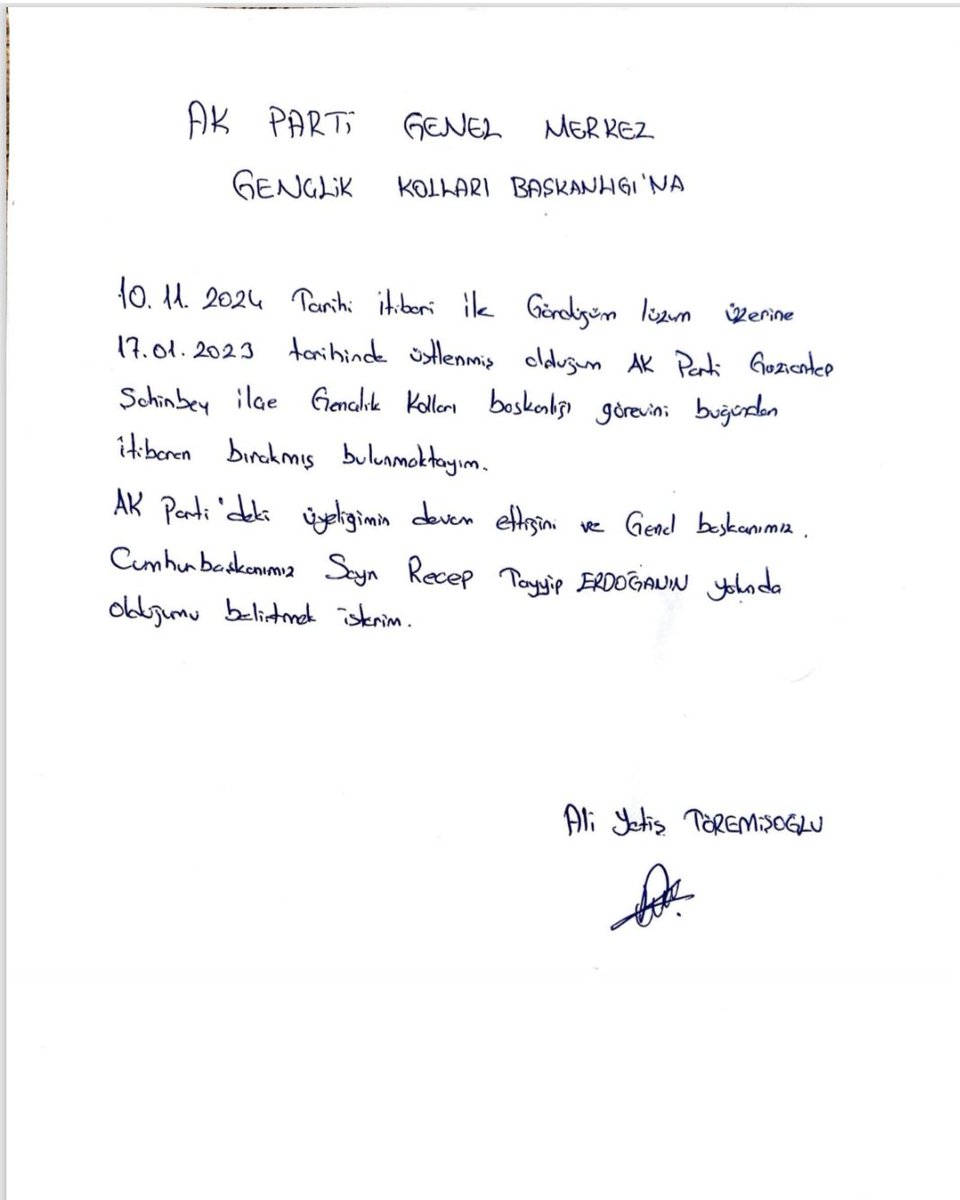 AK PARTİ GENEL MERKEZ
GENÇLİK KOLLARI BAŞKANLIĞI'NA
10.11.2024 Tarihi itibari ile Gördüğüm lüzum üzerine
17.01.2023 tarihinde üstlenmiş olduğum AK Parti Gaziantep
Şahinbey ilçe Gençlik Kolları başkanlığı görevini bugünden
itibaren bırakmış bulunmaktayım.
AK Parti'deki üyeliğimin devam ettiğini ve Genel başkanımız.
Cumhurbaşkanımız Sayın Recep Tayyip ERDOĞANIN yolunda
olduğumu belirtmek isterim.
Ali Yetiş TÖREMİŞOĞLU